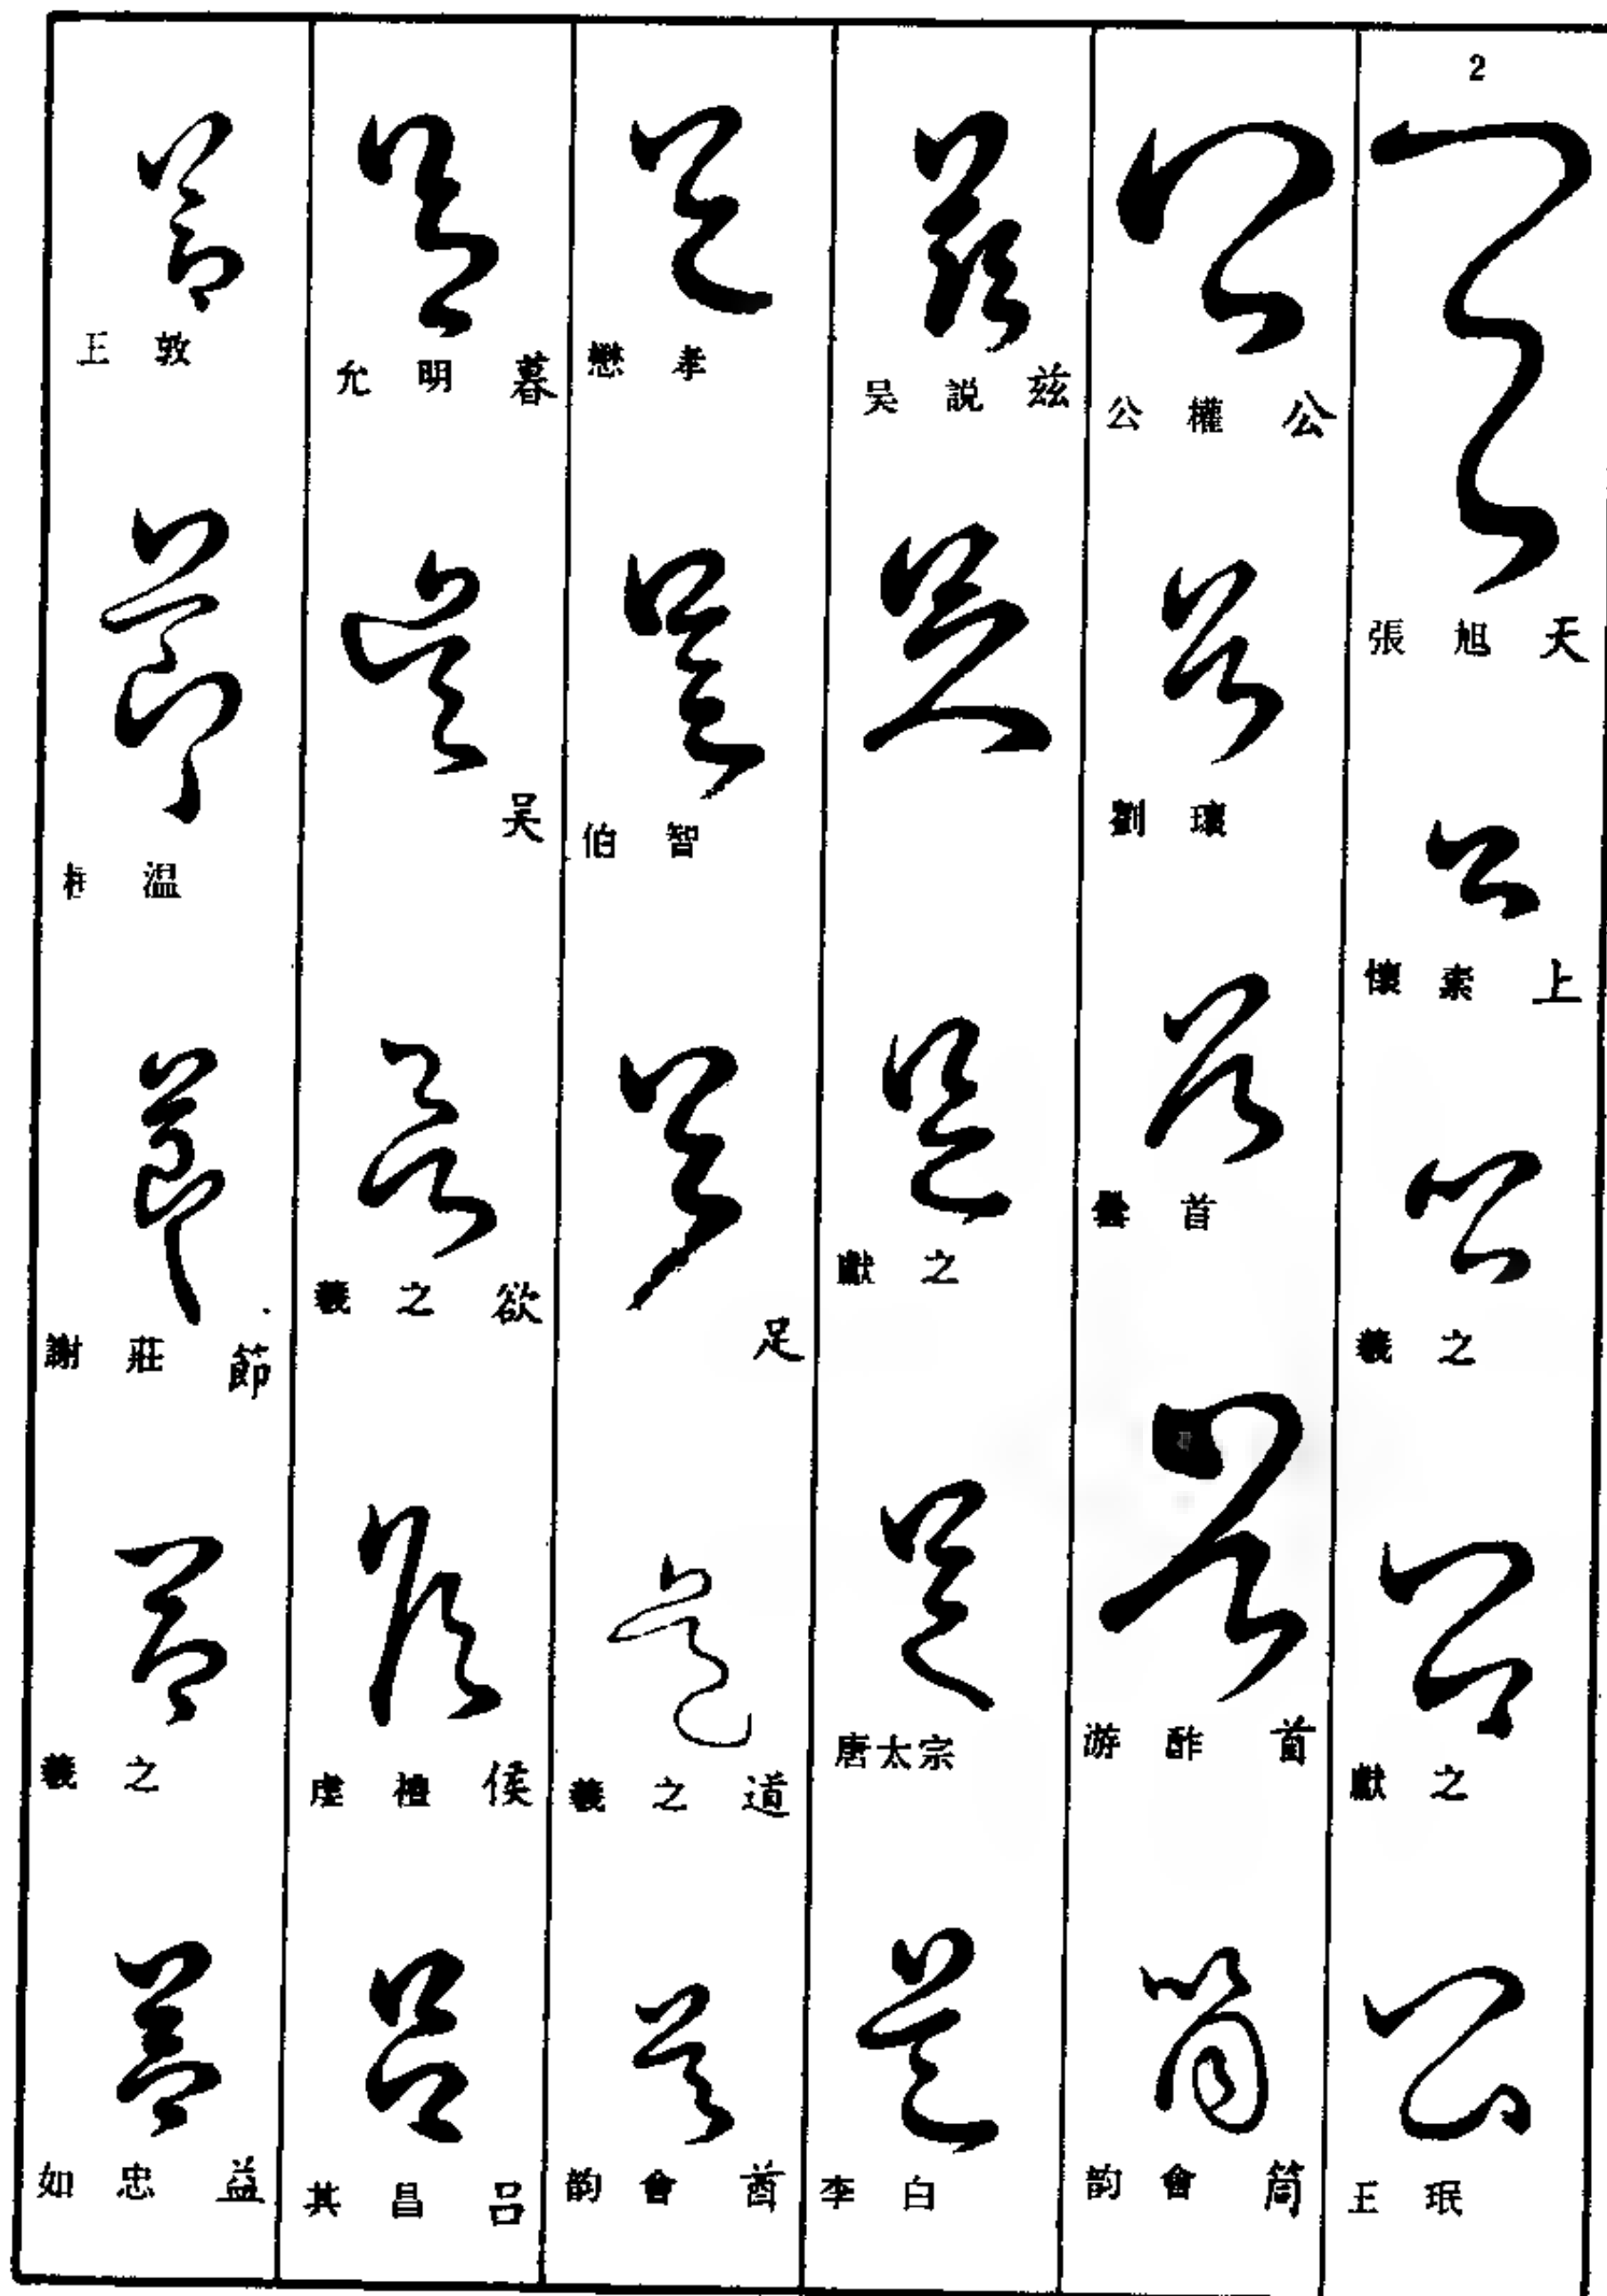 2
張旭 天
懷素 上
羲之
獻之
王珉
公權 公
劉瓌
首
游酢 首
韵會 筒
吴説 兹
獻之
唐太宗
李白
懋孝
伯智
足
羲之 道
韵會 酋
允明 暮
吴
羲之 欲
虚檀 侯
其昌 吕
王敦
温
謝莊 節
羲之
如忠 益